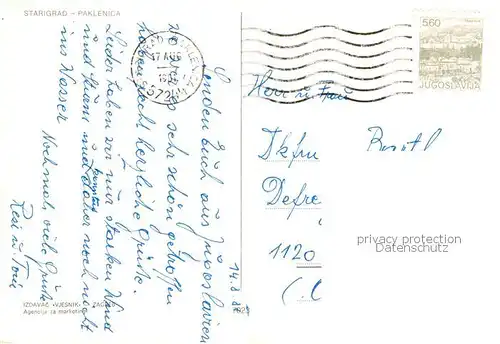 STARIGRAD - PAKLENICA
14.8.8
Senden Euch aus Jugoslavien
wo wir es sehr schön getroffen
haben, recht herzliche Grüße.
Leider haben wir nur starken Wind
und Sturm und daher noch nicht
ins Wasser
Nochmals viele Grüße
Resi u. Toni
IZDAVAČ »VJESNIK« ZAG
Agencija za marketing
5.60
JUGOSLAVIJA
Herr u. Frau
Dkfm
Defre
1120
privacy protection
Datenschutz